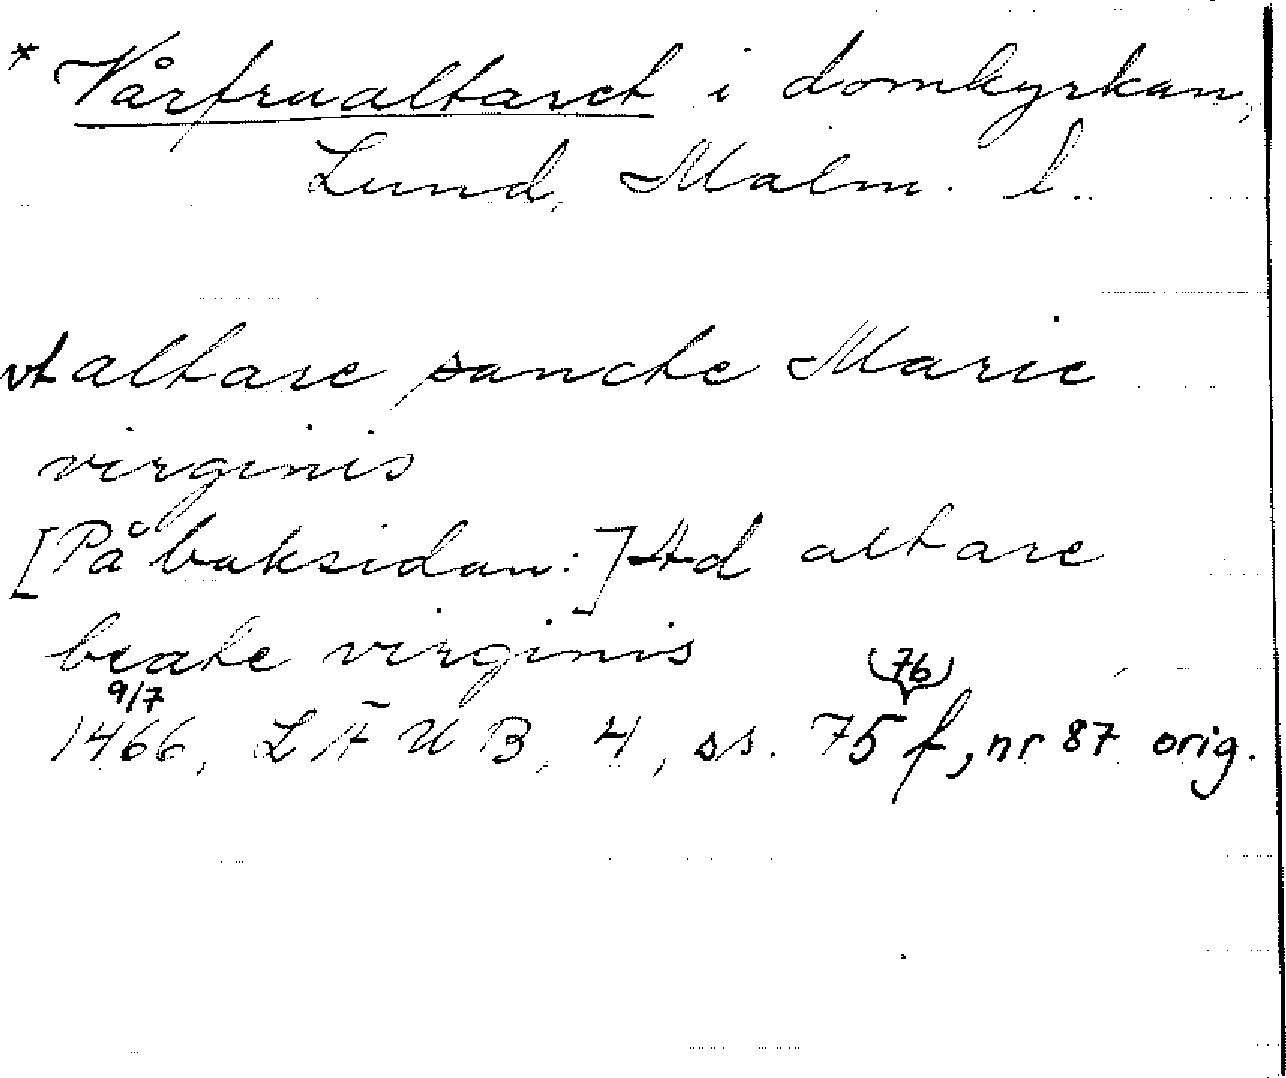 * Vårfrualtaret i domkyrkan,
Lund, Malm. l.
vt altare sancte Marie
virginis
[På baksidan:] Ad altare
beate virginis
(76)
9/7
1466, LÄUB, 4, ss. 75 f, nr 87 orig.